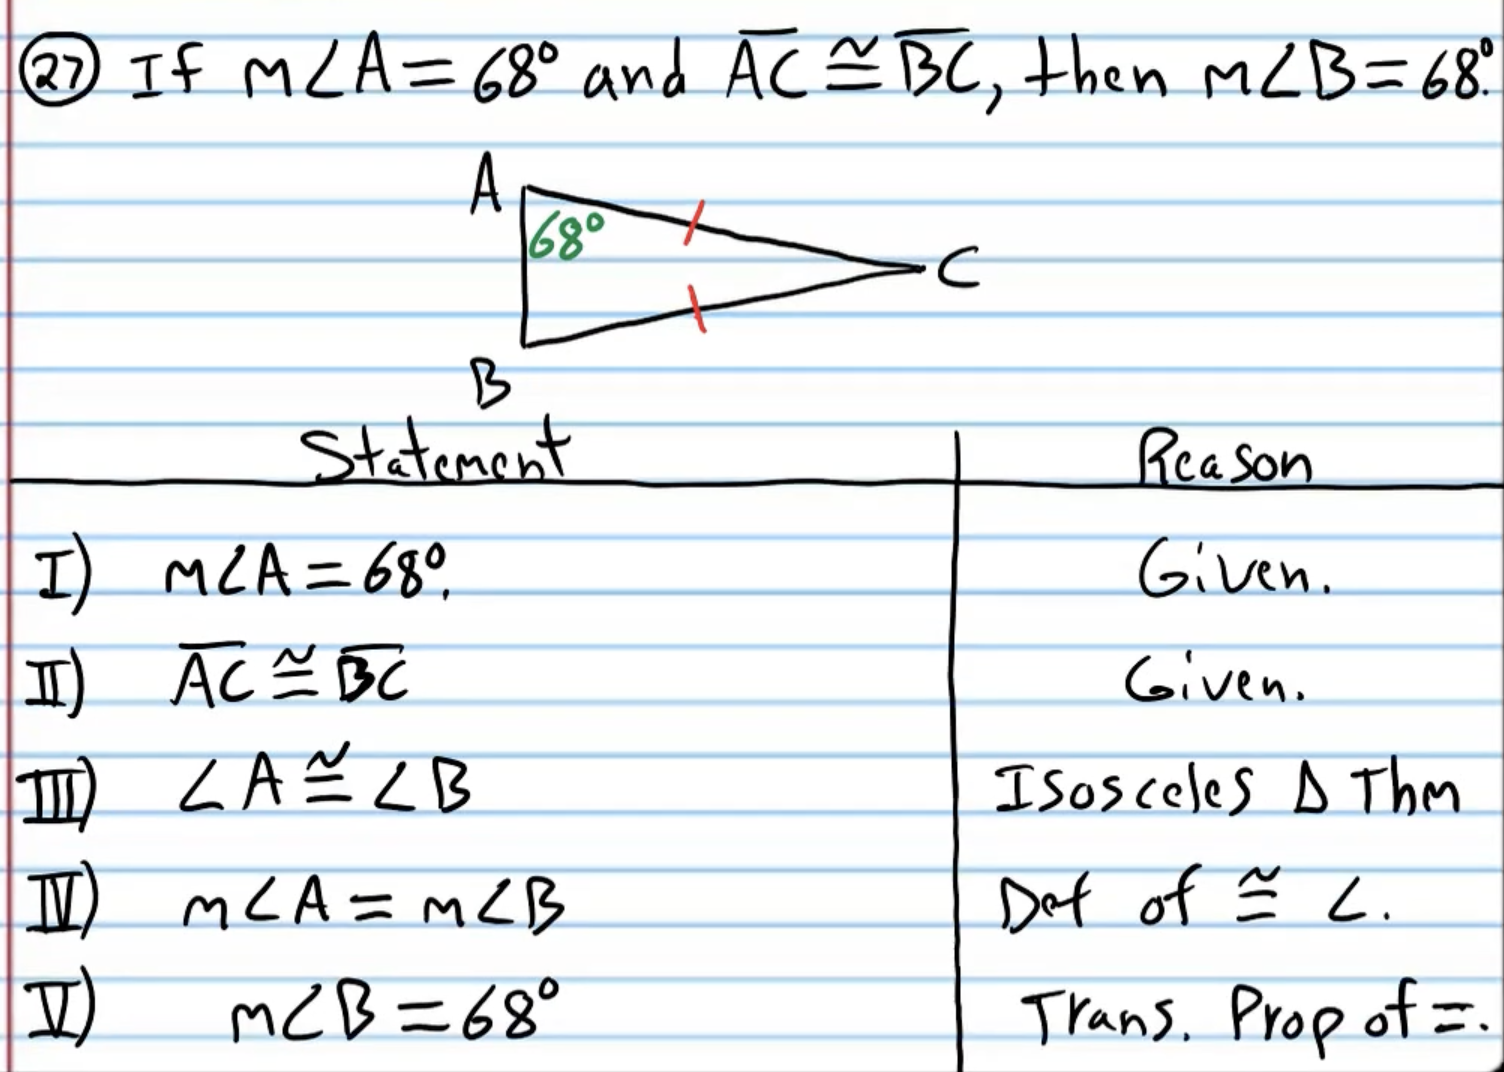 27 If m∠A = 68° and A̅C̅ ≅ B̅C̅, then m∠B = 68°.
A
68°
C
B
Statement Reason
I) m∠A = 68°. Given.
II) A̅C̅ ≅ B̅C̅ Given.
III) ∠A ≅ ∠B Isosceles Δ Thm
IV) m∠A = m∠B Def of ≅ ∠.
V) m∠B = 68° Trans. Prop of =.